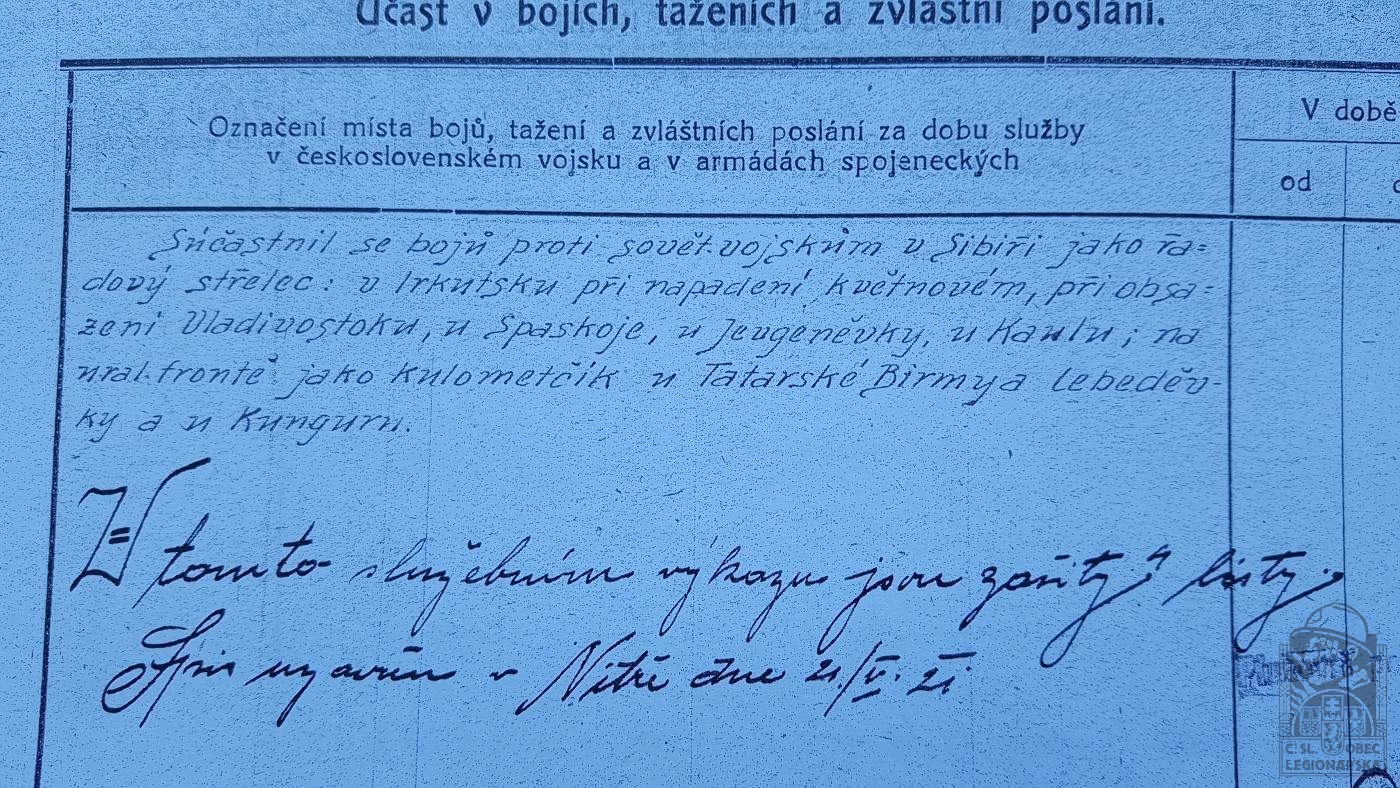 Účast v bojích, taženích a zvláštní poslání.
Označení místa bojů, tažení a zvláštních poslání za dobu služby
v československém vojsku a v armádách spojeneckých
V době
od
Súčastnil se bojů proti sovět.vojskům v Sibiři jako řa=
dový střelec: v Irkutsku při napadení květnovém, při obsa=
zení Vladivostoku, u Spaskoje, u Jevgeněvky, u Kaulu; na
ural.frontě jako kulometčík u Tatarské Birmy a Lebeděv-
ky a u Kunguru.
V tomto služebním výkazu jsou zašity 4 listy.
Spis uzavřen v Nitře dne 21/V. 21
ČSL. OBEC
LEGIONÁŘSKÁ